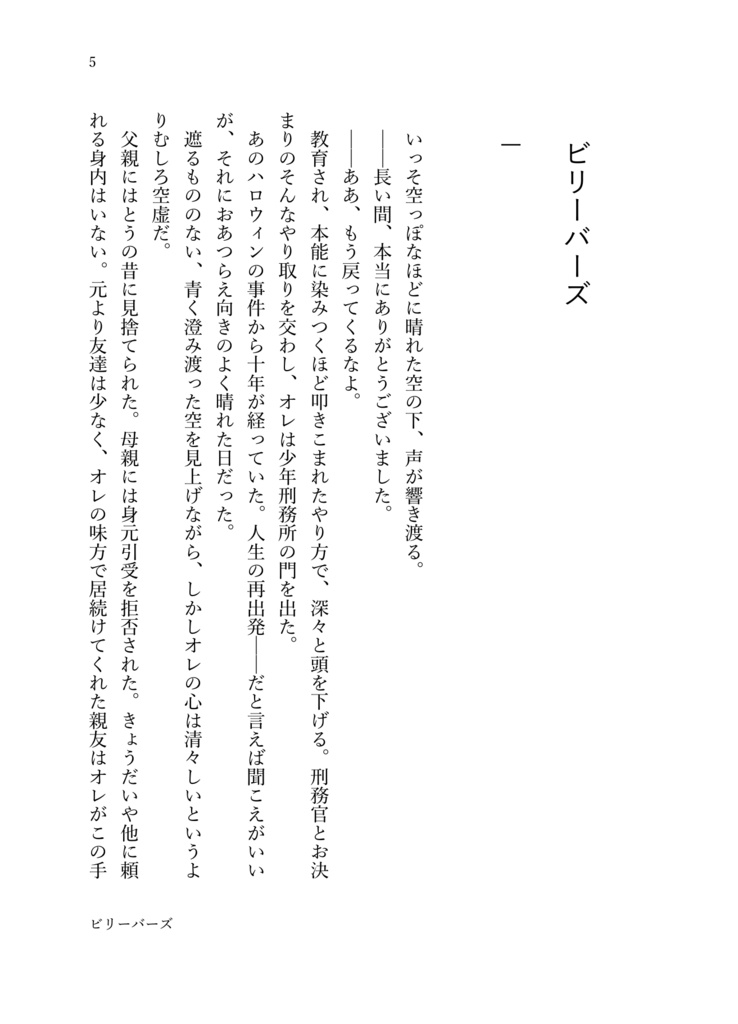 5
ビリーバーズ
一
いっそ空っぽなほどに晴れた空の下、声が響き渡る。
――長い間、本当にありがとうございました。
――ああ、もう戻ってくるなよ。
教育され、本能に染みつくほど叩きこまれたやり方で、深々と頭を下げる。刑務官とお決
まりのそんなやり取りを交わし、オレは少年刑務所の門を出た。
あのハロウィンの事件から十年が経っていた。人生の再出発――だと言えば聞こえがいい
が、それにおあつらえ向きのよく晴れた日だった。
遮るもののない、青く澄み渡った空を見上げながら、しかしオレの心は清々しいというよ
りむしろ空虚だ。
父親にはとうの昔に見捨てられた。母親には身元引受を拒否された。きょうだいや他に頼
れる身内はいない。元より友達は少なく、オレの味方で居続けてくれた親友はオレがこの手
ビリーバーズ